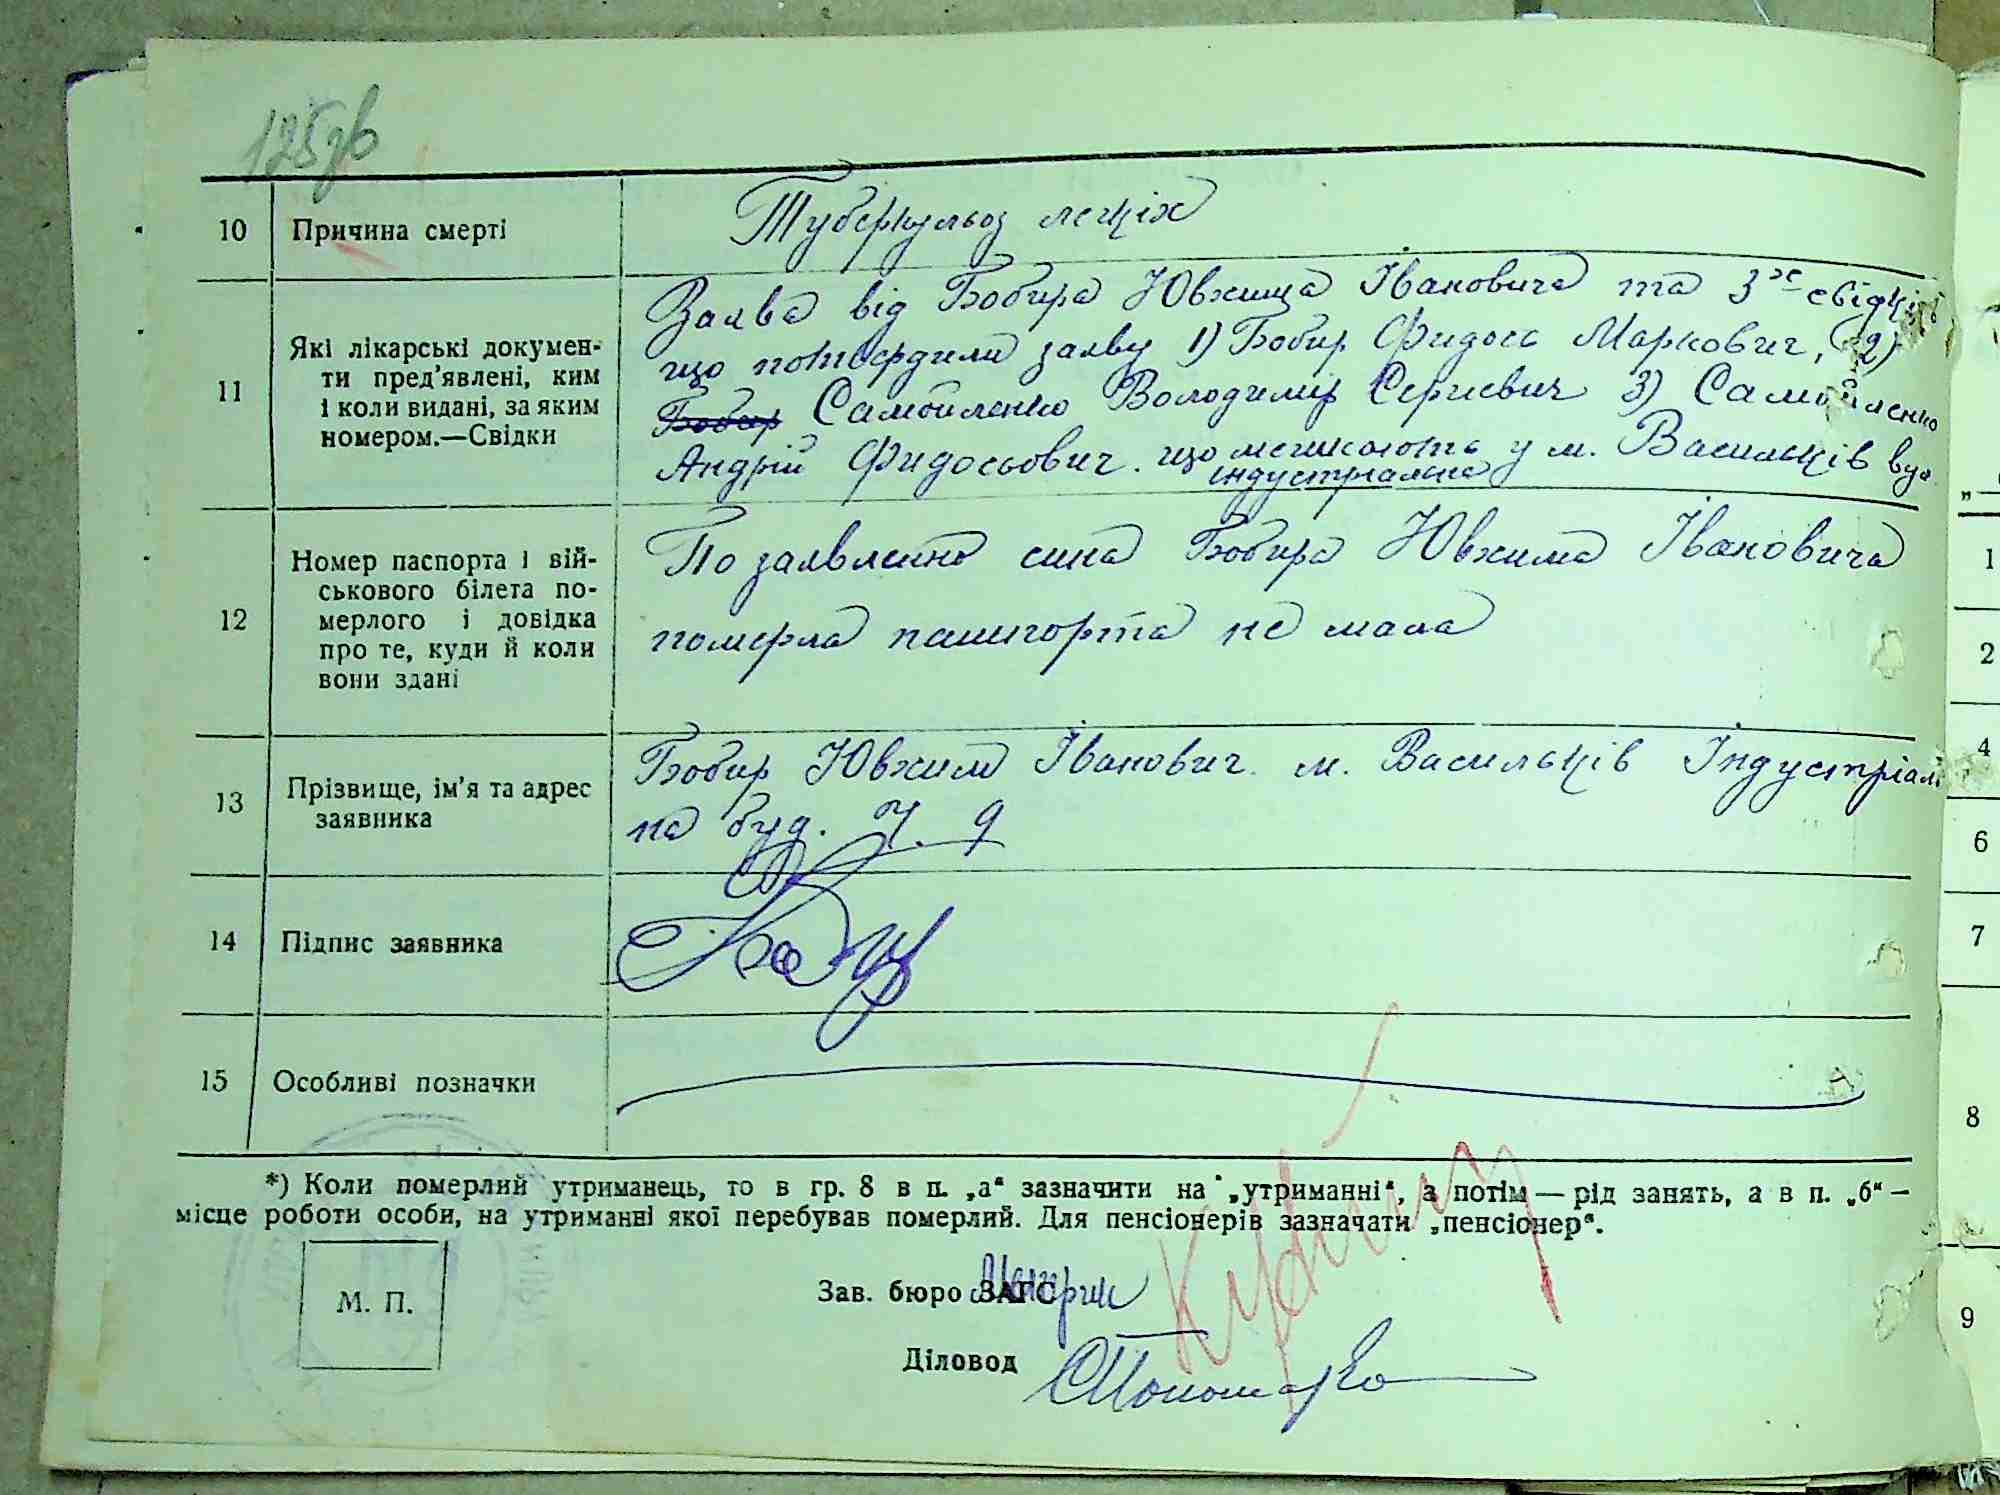 125 зв
10 Причина смерті Туберкульоз легкіх
11 Які лікарські докумен-
ти пред'явлені, ким
і коли видані, за яким
номером.—Свідки
Заява від Бобира Ювхима Івановича та 3х свідків
що потвердили заяву 1) Бобир Фидось Маркович, 2)
Бобир Самойленко Володимір Сергиевич 3) Самойленко
Андрій Фидосьович. що мешкають у м. Васильків вул.
індустріальна
12 Номер паспорта і вій-
ськового білета по-
мерлого і довідка
про те, куди й коли
вони здані
По заявленню сина Бобира Ювхима Івановича
померла пашпорта не мала
13 Прізвище, ім'я та адрес
заявника
Бобир Ювхим Іванович м. Васильків Індустріаль
на буд. ч. 9
14 Підпис заявника
15 Особливі позначки
*) Коли померлий утриманець, то в гр. 8 в п. „а“ зазначити на „утриманні“, а потім — рід занять, а в п. „б“ —
місце роботи особи, на утриманні якої перебував померлий. Для пенсіонерів зазначати „пенсіонер“.
М. П.
Зав. бюро ЗАГС
Діловод
„
1
2
4
6
7
8
9